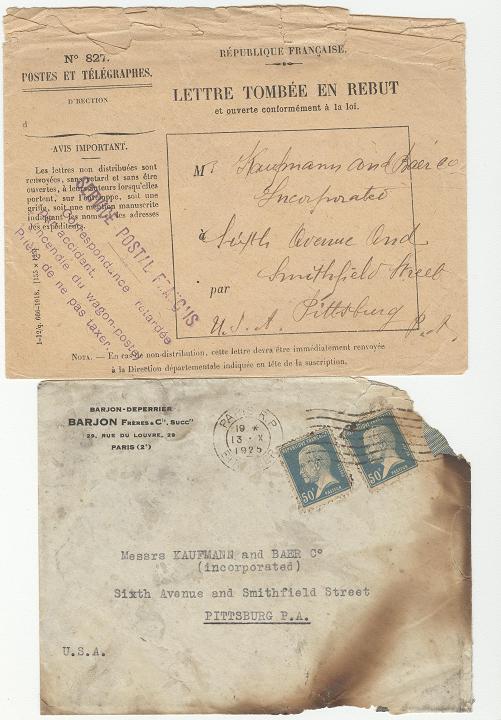 N° 827.
POSTES ET TÉLÉGRAPHES.
DIRECTION
d
AVIS IMPORTANT.
Les lettres non distribuées sont
renvoyées, sans retard et sans être
ouvertes, à leurs auteurs lorsqu'elles
portent, sur l'enveloppe, soit une
griffe, soit une mention manuscrite
indiquant les noms et les adresses
des expéditeurs.
RÉPUBLIQUE FRANÇAISE.
LETTRE TOMBÉE EN REBUT
et ouverte conformément à la loi.
M Kaufmann and Baer Co
Incorporated
à Sixth Avenue and
Smithfield Street
par Pittsburg
U.S.A. P.A.
SERVICE POSTAL FRANÇAIS
Correspondance retardée
accident
incendie du wagon-postal
Prière de ne pas taxer.
NOTA. — En cas de non-distribution, cette lettre devra être immédiatement renvoyée
à la Direction départementale indiquée en tête de la suscription.
BARJON-DEPERRIER
BARJON FRÈRES & Cie, Succrs
29, RUE DU LOUVRE, 29
PARIS (2e)
PARIS R.P.
19 *
13 · X
1925
RÉPUBLIQUE FRANÇAISE
50c
PASTEUR
50c
PASTEUR
Messrs KAUFMANN and BAER Co
(incorporated)
Sixth Avenue and Smithfield Street
PITTSBURG P.A.
U.S.A.